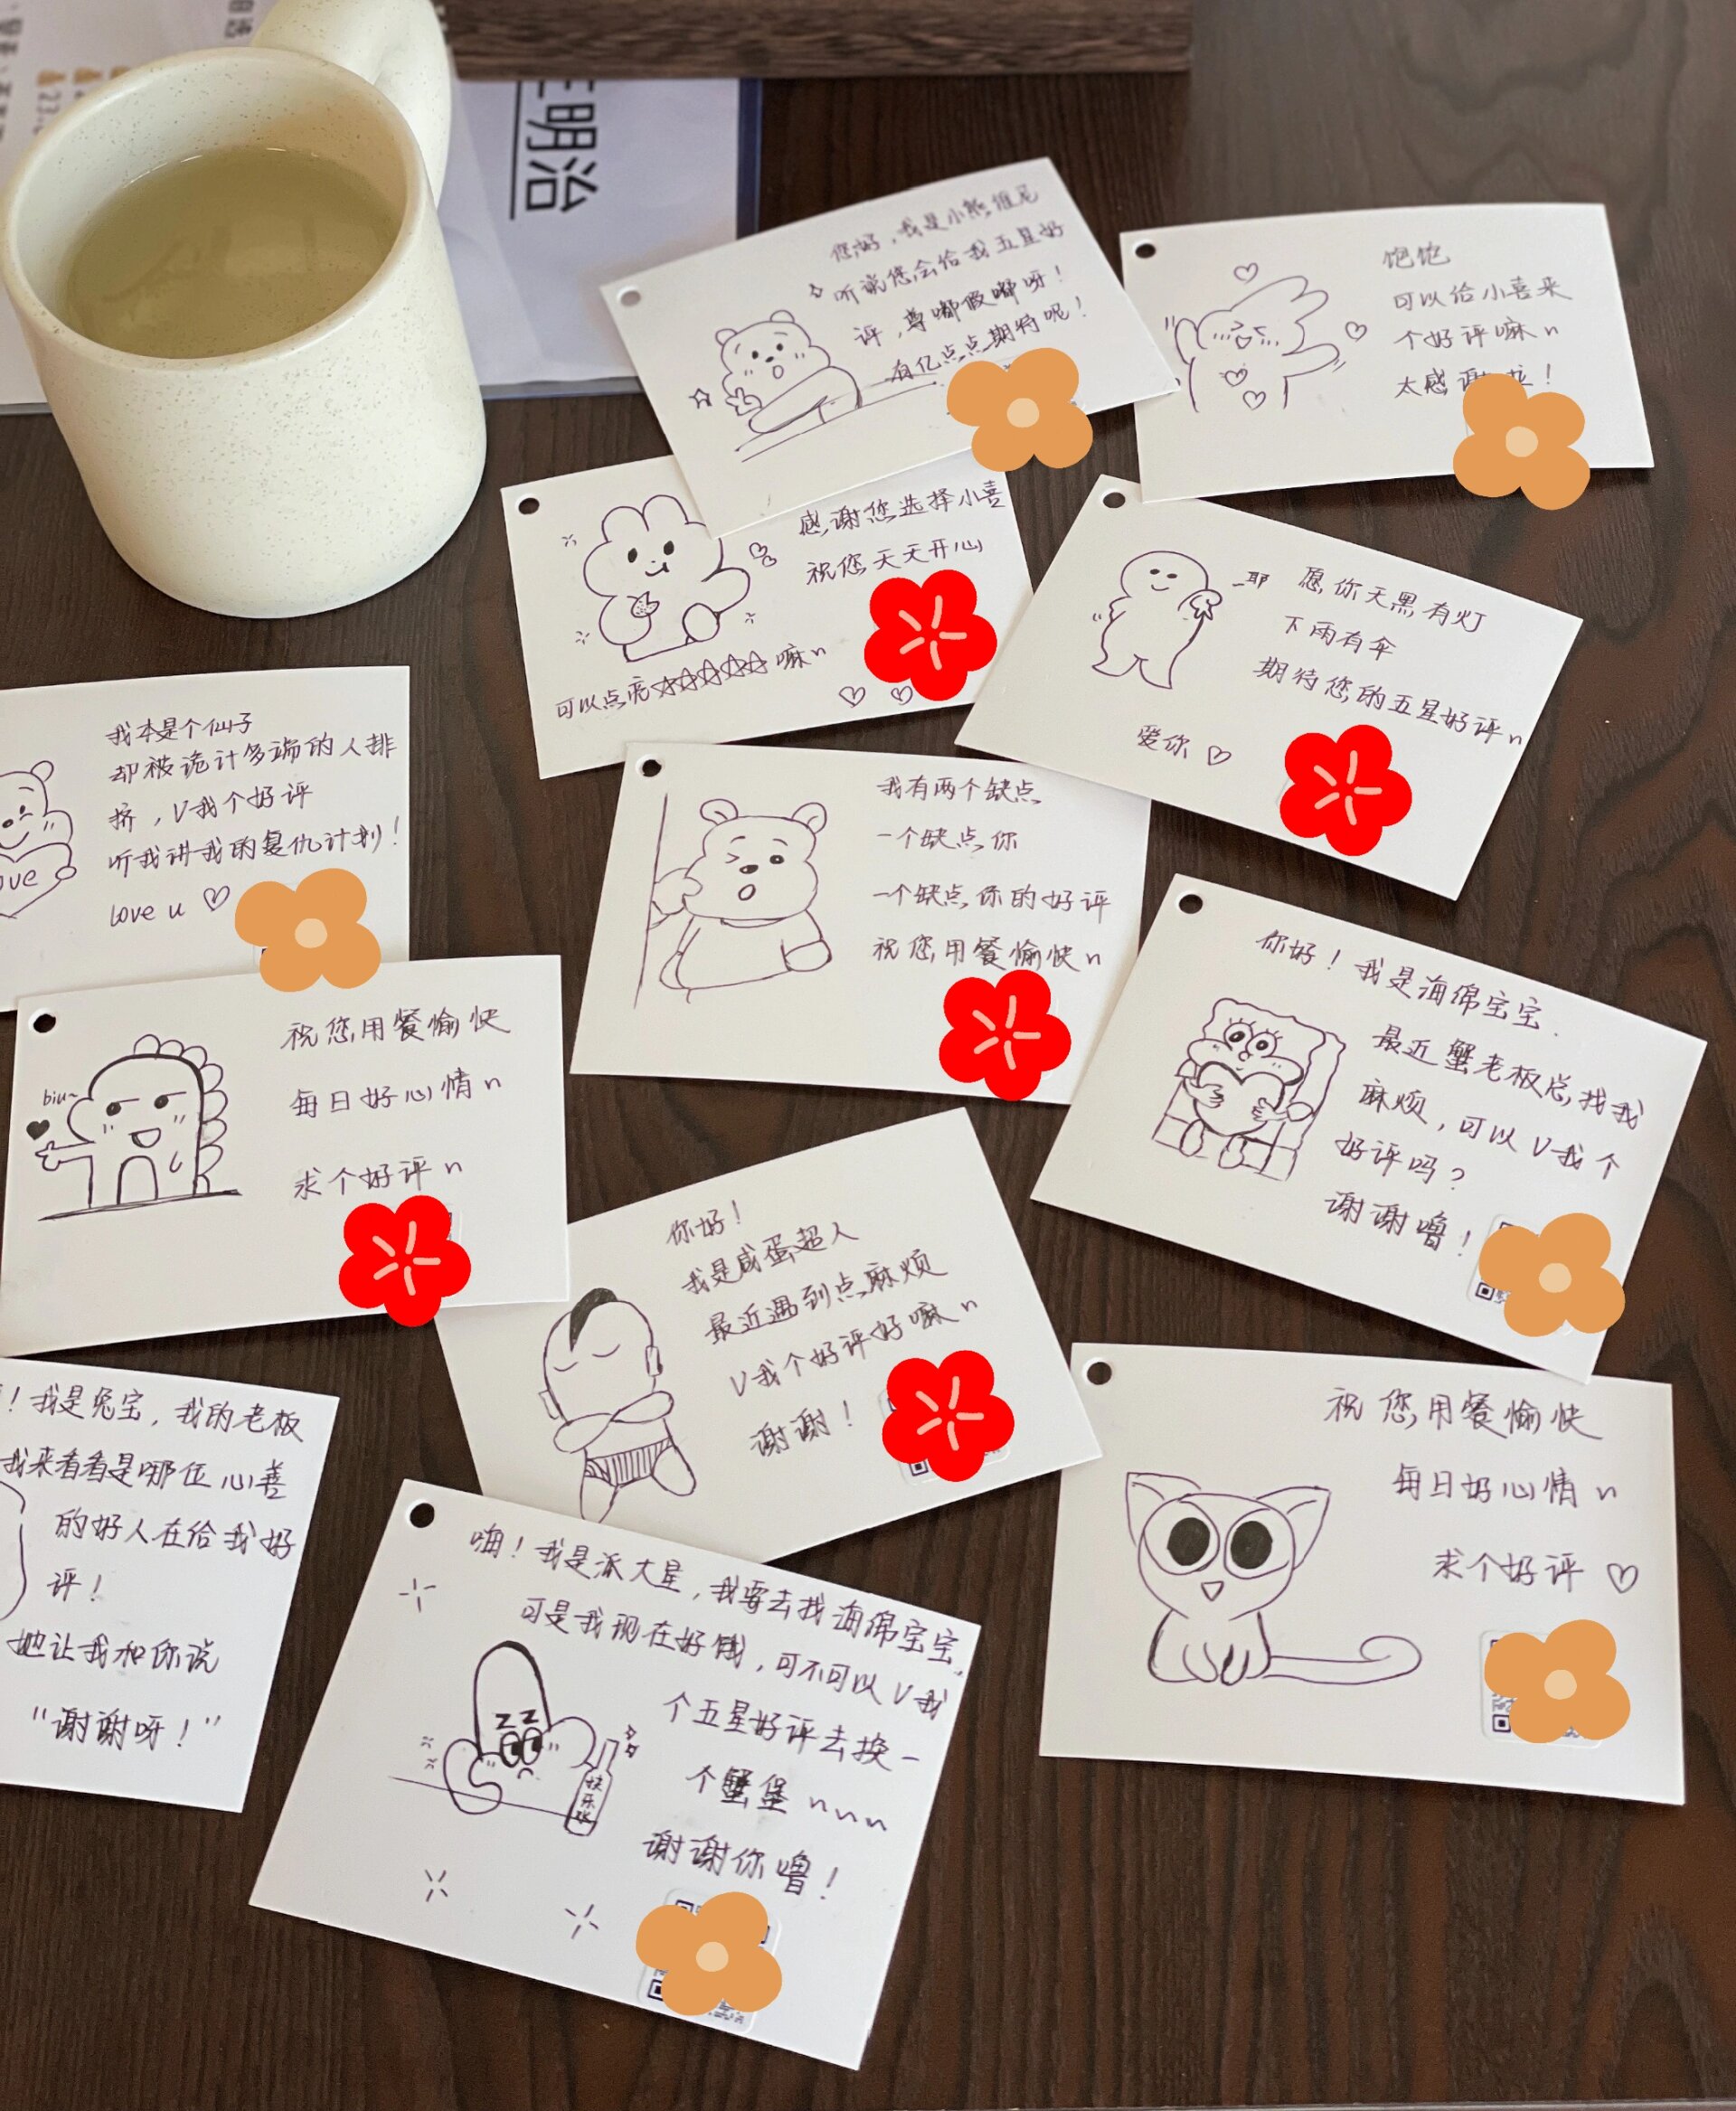 明治
您好，我是小熊维尼
听说您会给我五星好
评，尊嘟假嘟呀！
有亿点点期待呢！
饱饱
可以给小喜来
个好评嘛~
太感谢啦！
感谢您选择小喜
祝您天天开心
可以点亮☆☆☆☆☆嘛~
耶
愿你天黑有灯
下雨有伞
期待您的五星好评~
爱你♡
我本是个仙子
却被诡计多端的人排
挤，V我个好评
听我讲我的复仇计划！
love u ♡
我有两个缺点
一个缺点你
一个缺点你的好评
祝您用餐愉快~
你好！我是海绵宝宝.
最近蟹老板总找我
麻烦，可以V我个
好评吗？
谢谢噜！
biu~
祝您用餐愉快
每日好心情~
求个好评~
你好！
我是咸蛋超人
最近遇到点麻烦
V我个好评好嘛~
谢谢！
！我是兔宝，我的老板
我来看看是哪位心善
的好人在给我好
评！
她让我和你说
“谢谢呀！”
嗨！我是派大星，我要去找海绵宝宝，
可是我现在好饿，可不可以V我
个五星好评去换一
个蟹堡~~~
谢谢你噜！
快乐水
祝您用餐愉快
每日好心情~
求个好评♡